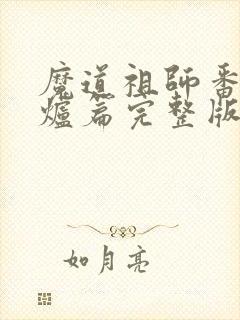 魔道祖師番
爐篇完整版
如月亮